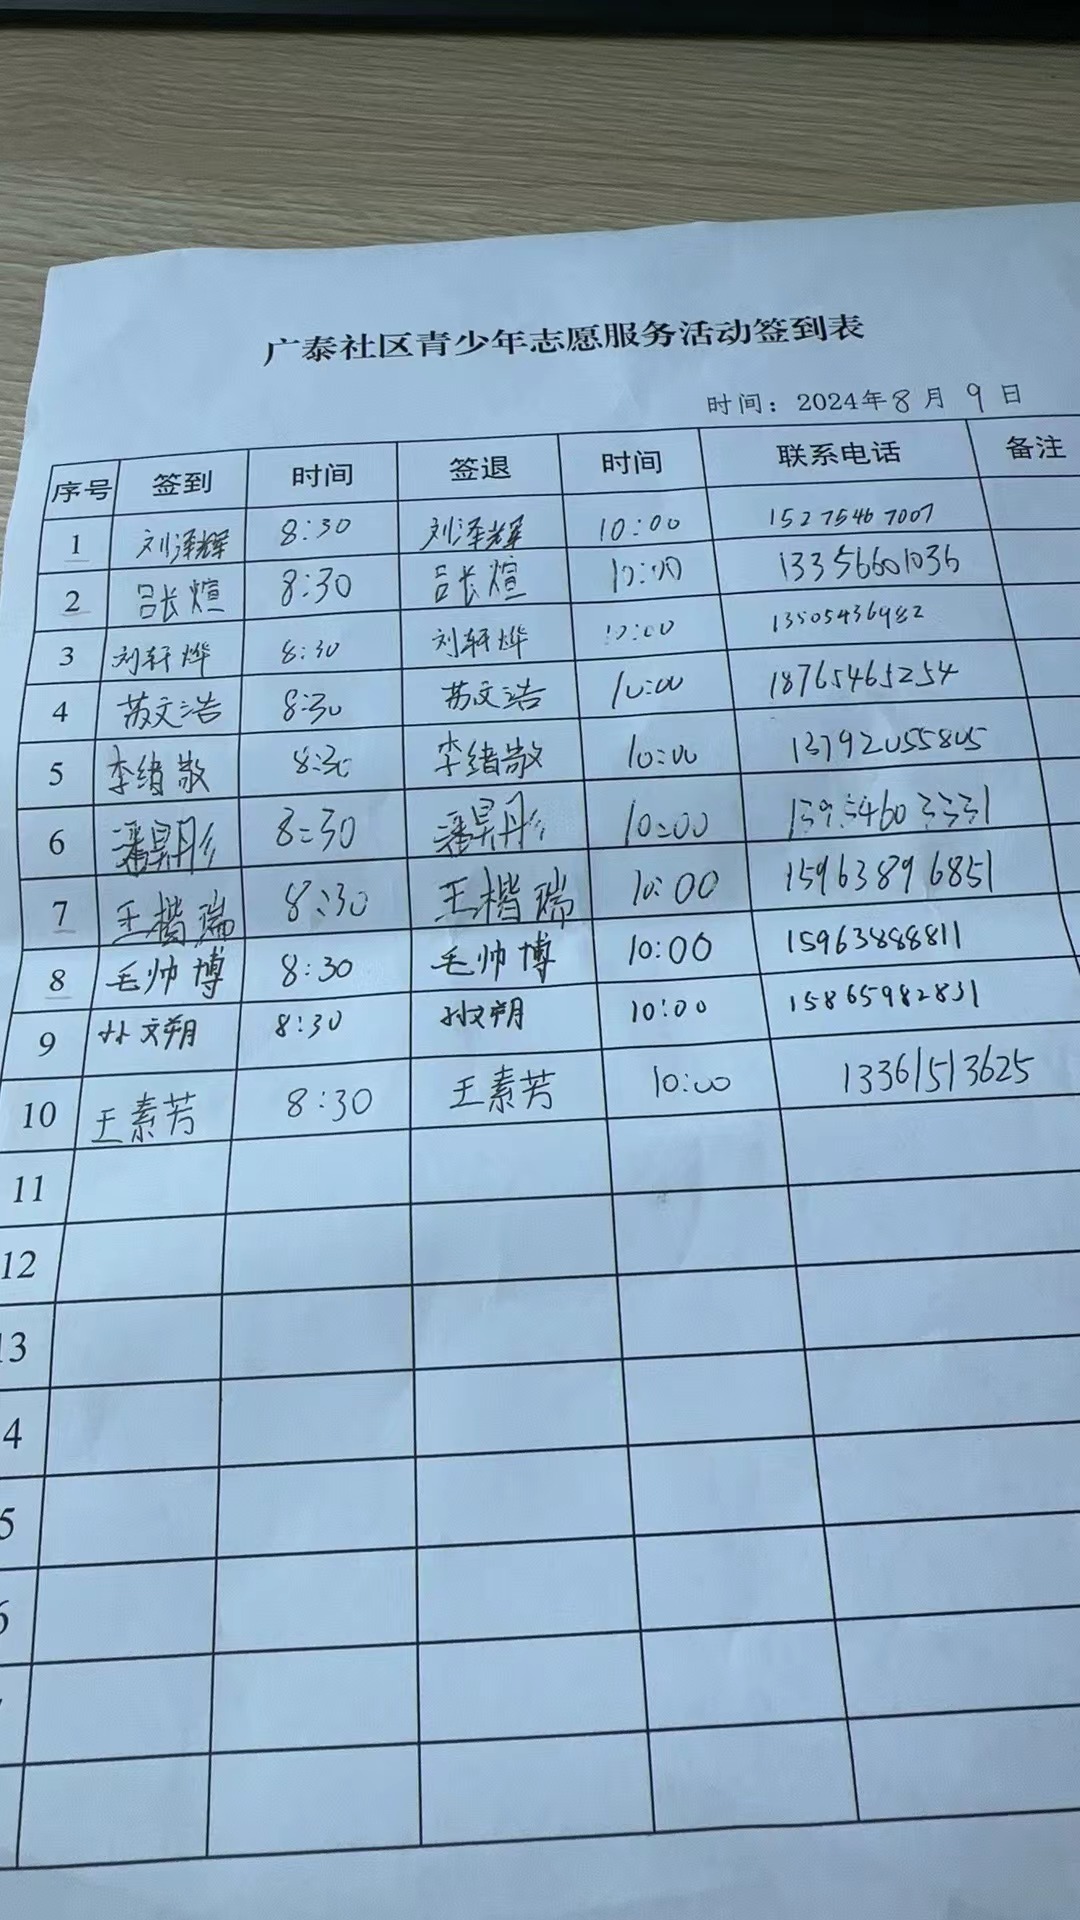 广泰社区青少年志愿服务活动签到表
时间：2024年8月9日
序号 签到 时间 签退 时间 联系电话 备注
1 刘泽辉 8:30 刘泽辉 10:00 15275467007
2 吕长煊 8:30 吕长煊 10:00 13356601036
3 刘轩烨 8:30 刘轩烨 10:00 13505436982
4 苏文浩 8:30 苏文浩 10:00 18765465254
5 李绪敬 8:30 李绪敬 10:00 13792055805
6 潘昊彤 8:30 潘昊彤 10:00
7 王楷瑞 8:30 王楷瑞 10:00 15963896851
8 毛帅博 8:30 毛帅博 10:00 15963888811
9 孙文朔 8:30 孙文朔 10:00 15865982831
10 王素芳 8:30 王素芳 10:00 13361513625
11
12
13
4
5
6